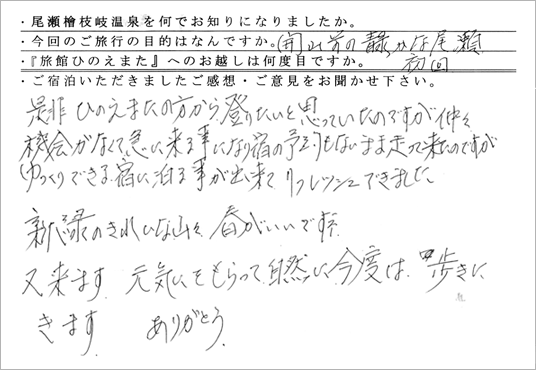 ・尾瀬檜枝岐温泉を何でお知りになりましたか。
・今回のご旅行の目的はなんですか。(開山前の静かな尾瀬
・『旅館ひのえまた』へのお越しは何度目ですか。 初回
・ご宿泊いただきましたご感想・ご意見をお聞かせ下さい。
是非ひのえまたの方から登りたいと思っていたのですが仲々
機会がなくて急に来る事になり宿の予約もないまま走って来たのですが
ゆっくりできる宿に泊る事が出来てリフレッシュできました
新緑のきれいな山々 春がいいですネ
又来ます 元気をもらって自然に 今度は 歩きに
きます ありがとう